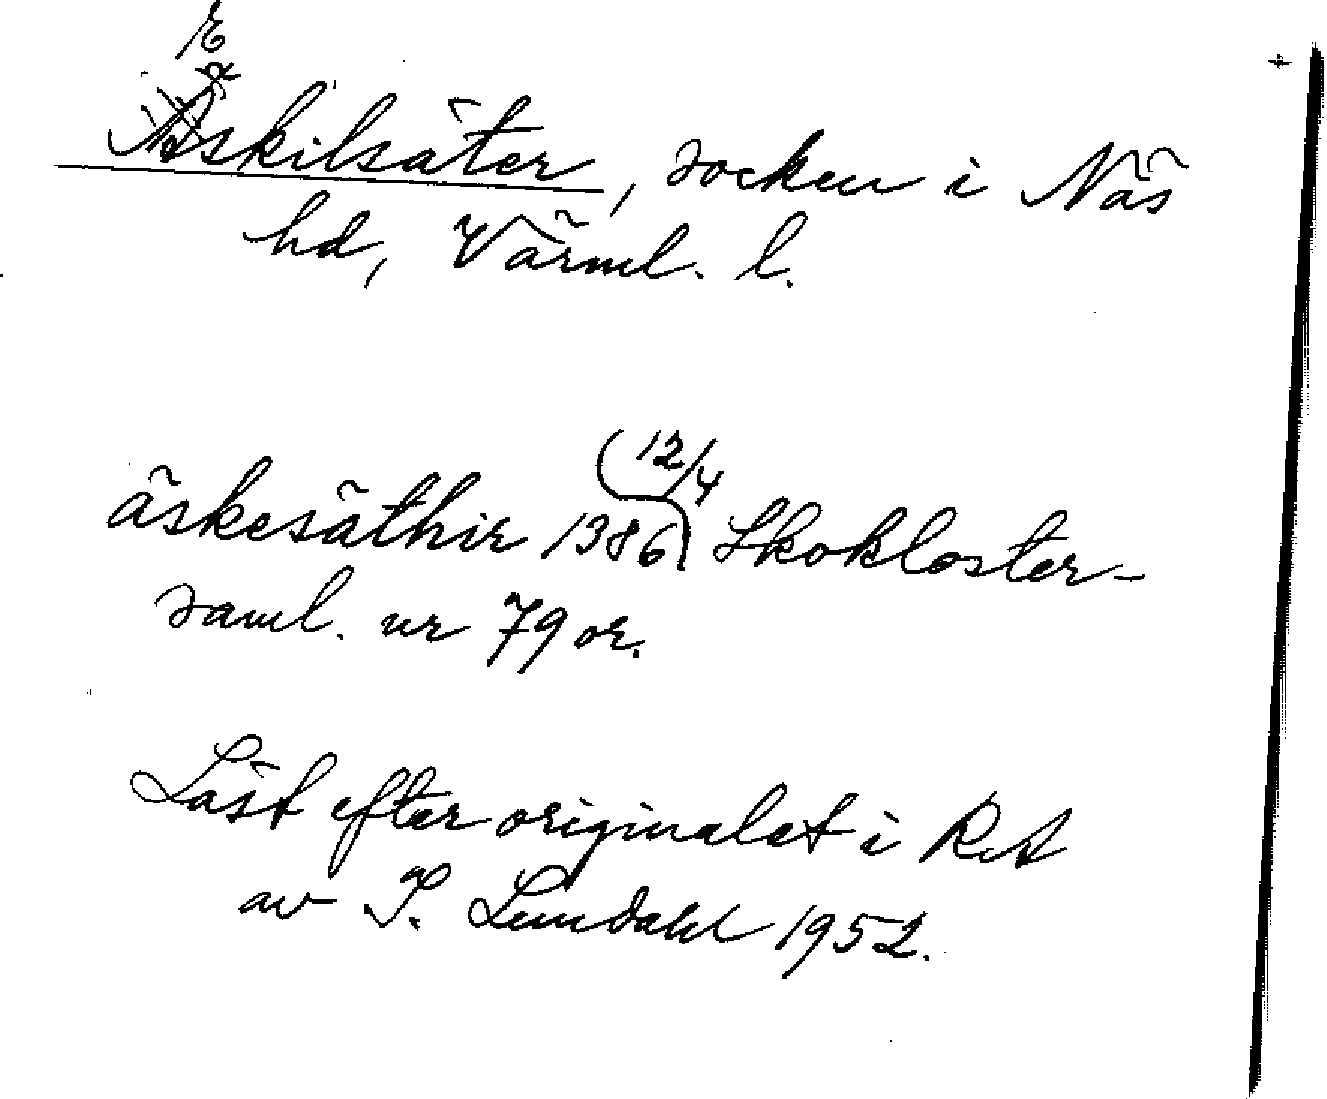 Eskilsäter, socken i Näs
hd, Värml. l.
äskesäthir 1386 (12/4) Skokloster-
saml. nr 79 or.
Läst efter originalet i RA
av I. Lundahl 1952.